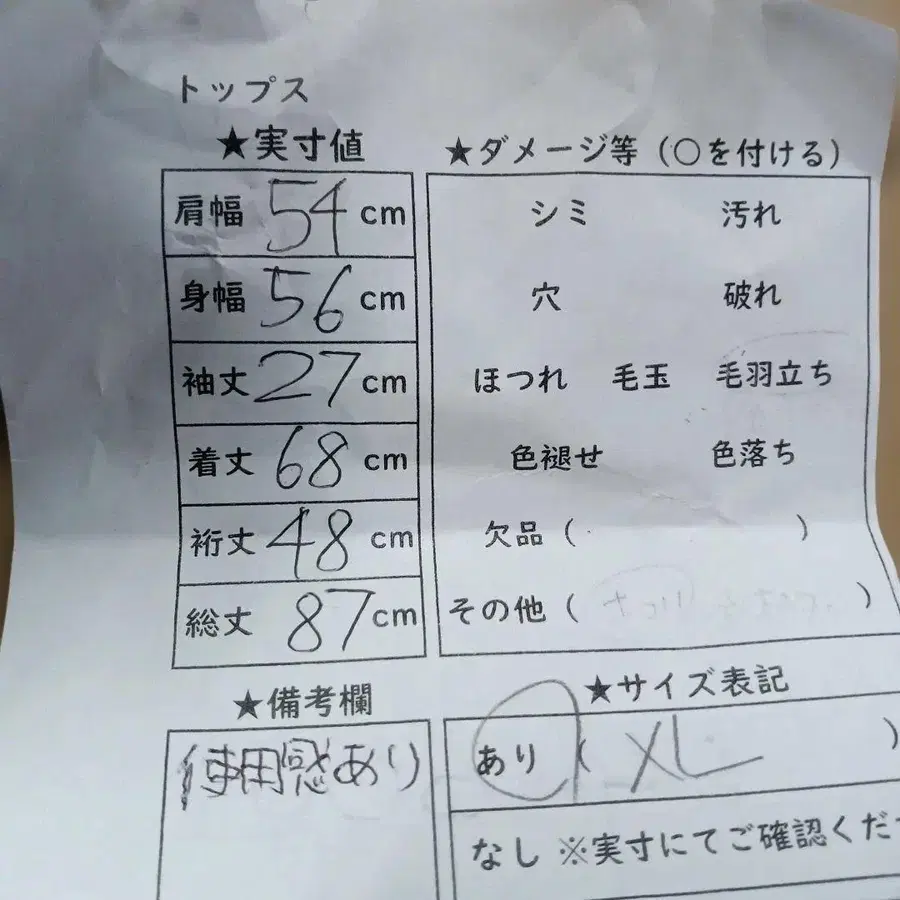 トップス
★実寸値
肩幅 54 cm
身幅 56 cm
袖丈 27 cm
着丈 68 cm
裄丈 48 cm
総丈 87 cm
★ダメージ等（○を付ける）
シミ 汚れ
穴 破れ
ほつれ 毛玉 毛羽立ち
色褪せ 色落ち
欠品（ ）
その他（ ）
★備考欄
使用感あり
★サイズ表記
あり（ XL ）
なし ※実寸にてご確認くだ